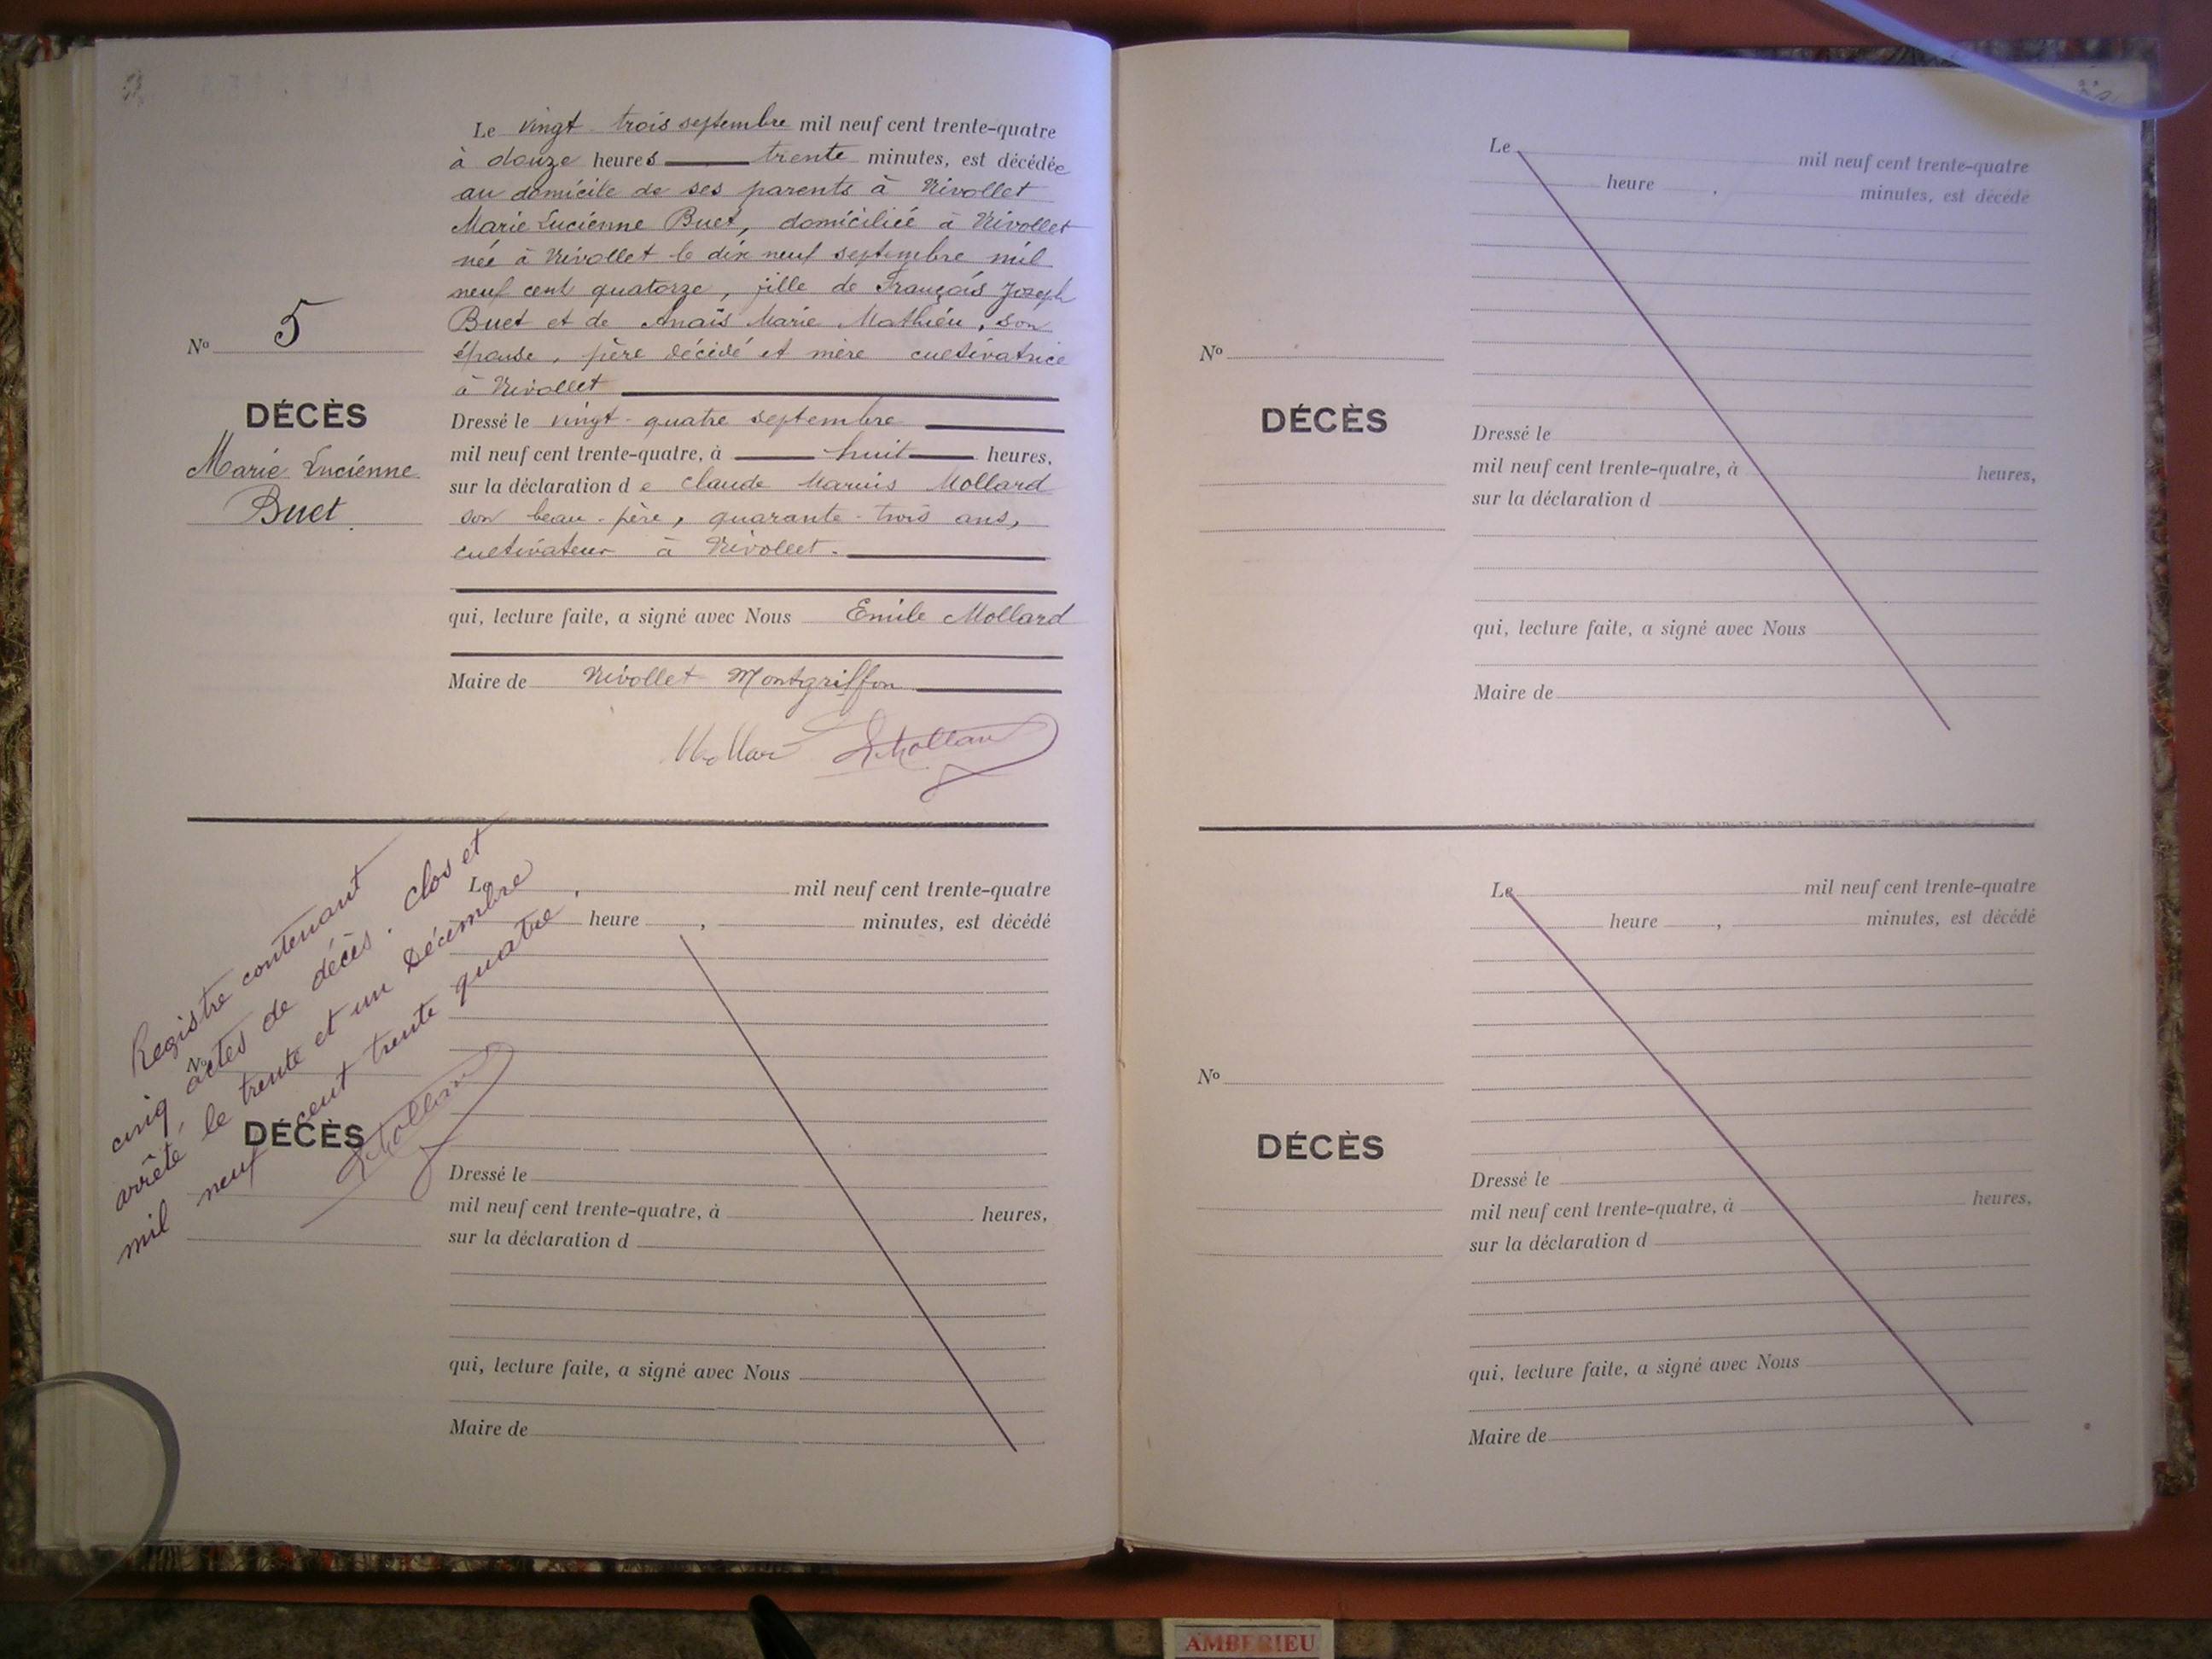 Le vingt-trois septembre mil neuf cent trente-quatre
à douze heures trente minutes, est décédée
au domicile de ses parents à Nivollet
Marie Lucienne Buet, domiciliée à Nivollet
née à Nivollet le dix neuf septembre mil
neuf cent quatorze, fille de François Joseph
Buet et de Anaïs Marie Mathieu, son
épouse, père décédé et mère cultivatrice
à Nivollet
No 5
DÉCÈS
Marie Lucienne
Buet
Dressé le vingt-quatre septembre
mil neuf cent trente-quatre, à huit heures,
sur la déclaration de Claude Marius Mollard
son beau-père, quarante-trois ans,
cultivateur à Nivollet.
qui, lecture faite, a signé avec Nous Emile Mollard
Maire de Nivollet Montgriffon
Mollar EMollard
Registre contenant
cinq actes de décès. Clos et
arrêté, le trente et un Décembre
mil neuf cent trente quatre
EMollard
Le mil neuf cent trente-quatre
heure , minutes, est décédé
No
DÉCÈS
Dressé le
mil neuf cent trente-quatre, à heures,
sur la déclaration d
qui, lecture faite, a signé avec Nous
Maire de
Le mil neuf cent trente-quatre
heure , minutes, est décédé
No
DÉCÈS
Dressé le
mil neuf cent trente-quatre, à heures,
sur la déclaration d
qui, lecture faite, a signé avec Nous
Maire de
Le mil neuf cent trente-quatre
heure , minutes, est décédé
No
DÉCÈS
Dressé le
mil neuf cent trente-quatre, à heures,
sur la déclaration d
qui, lecture faite, a signé avec Nous
Maire de
AMBERIEU